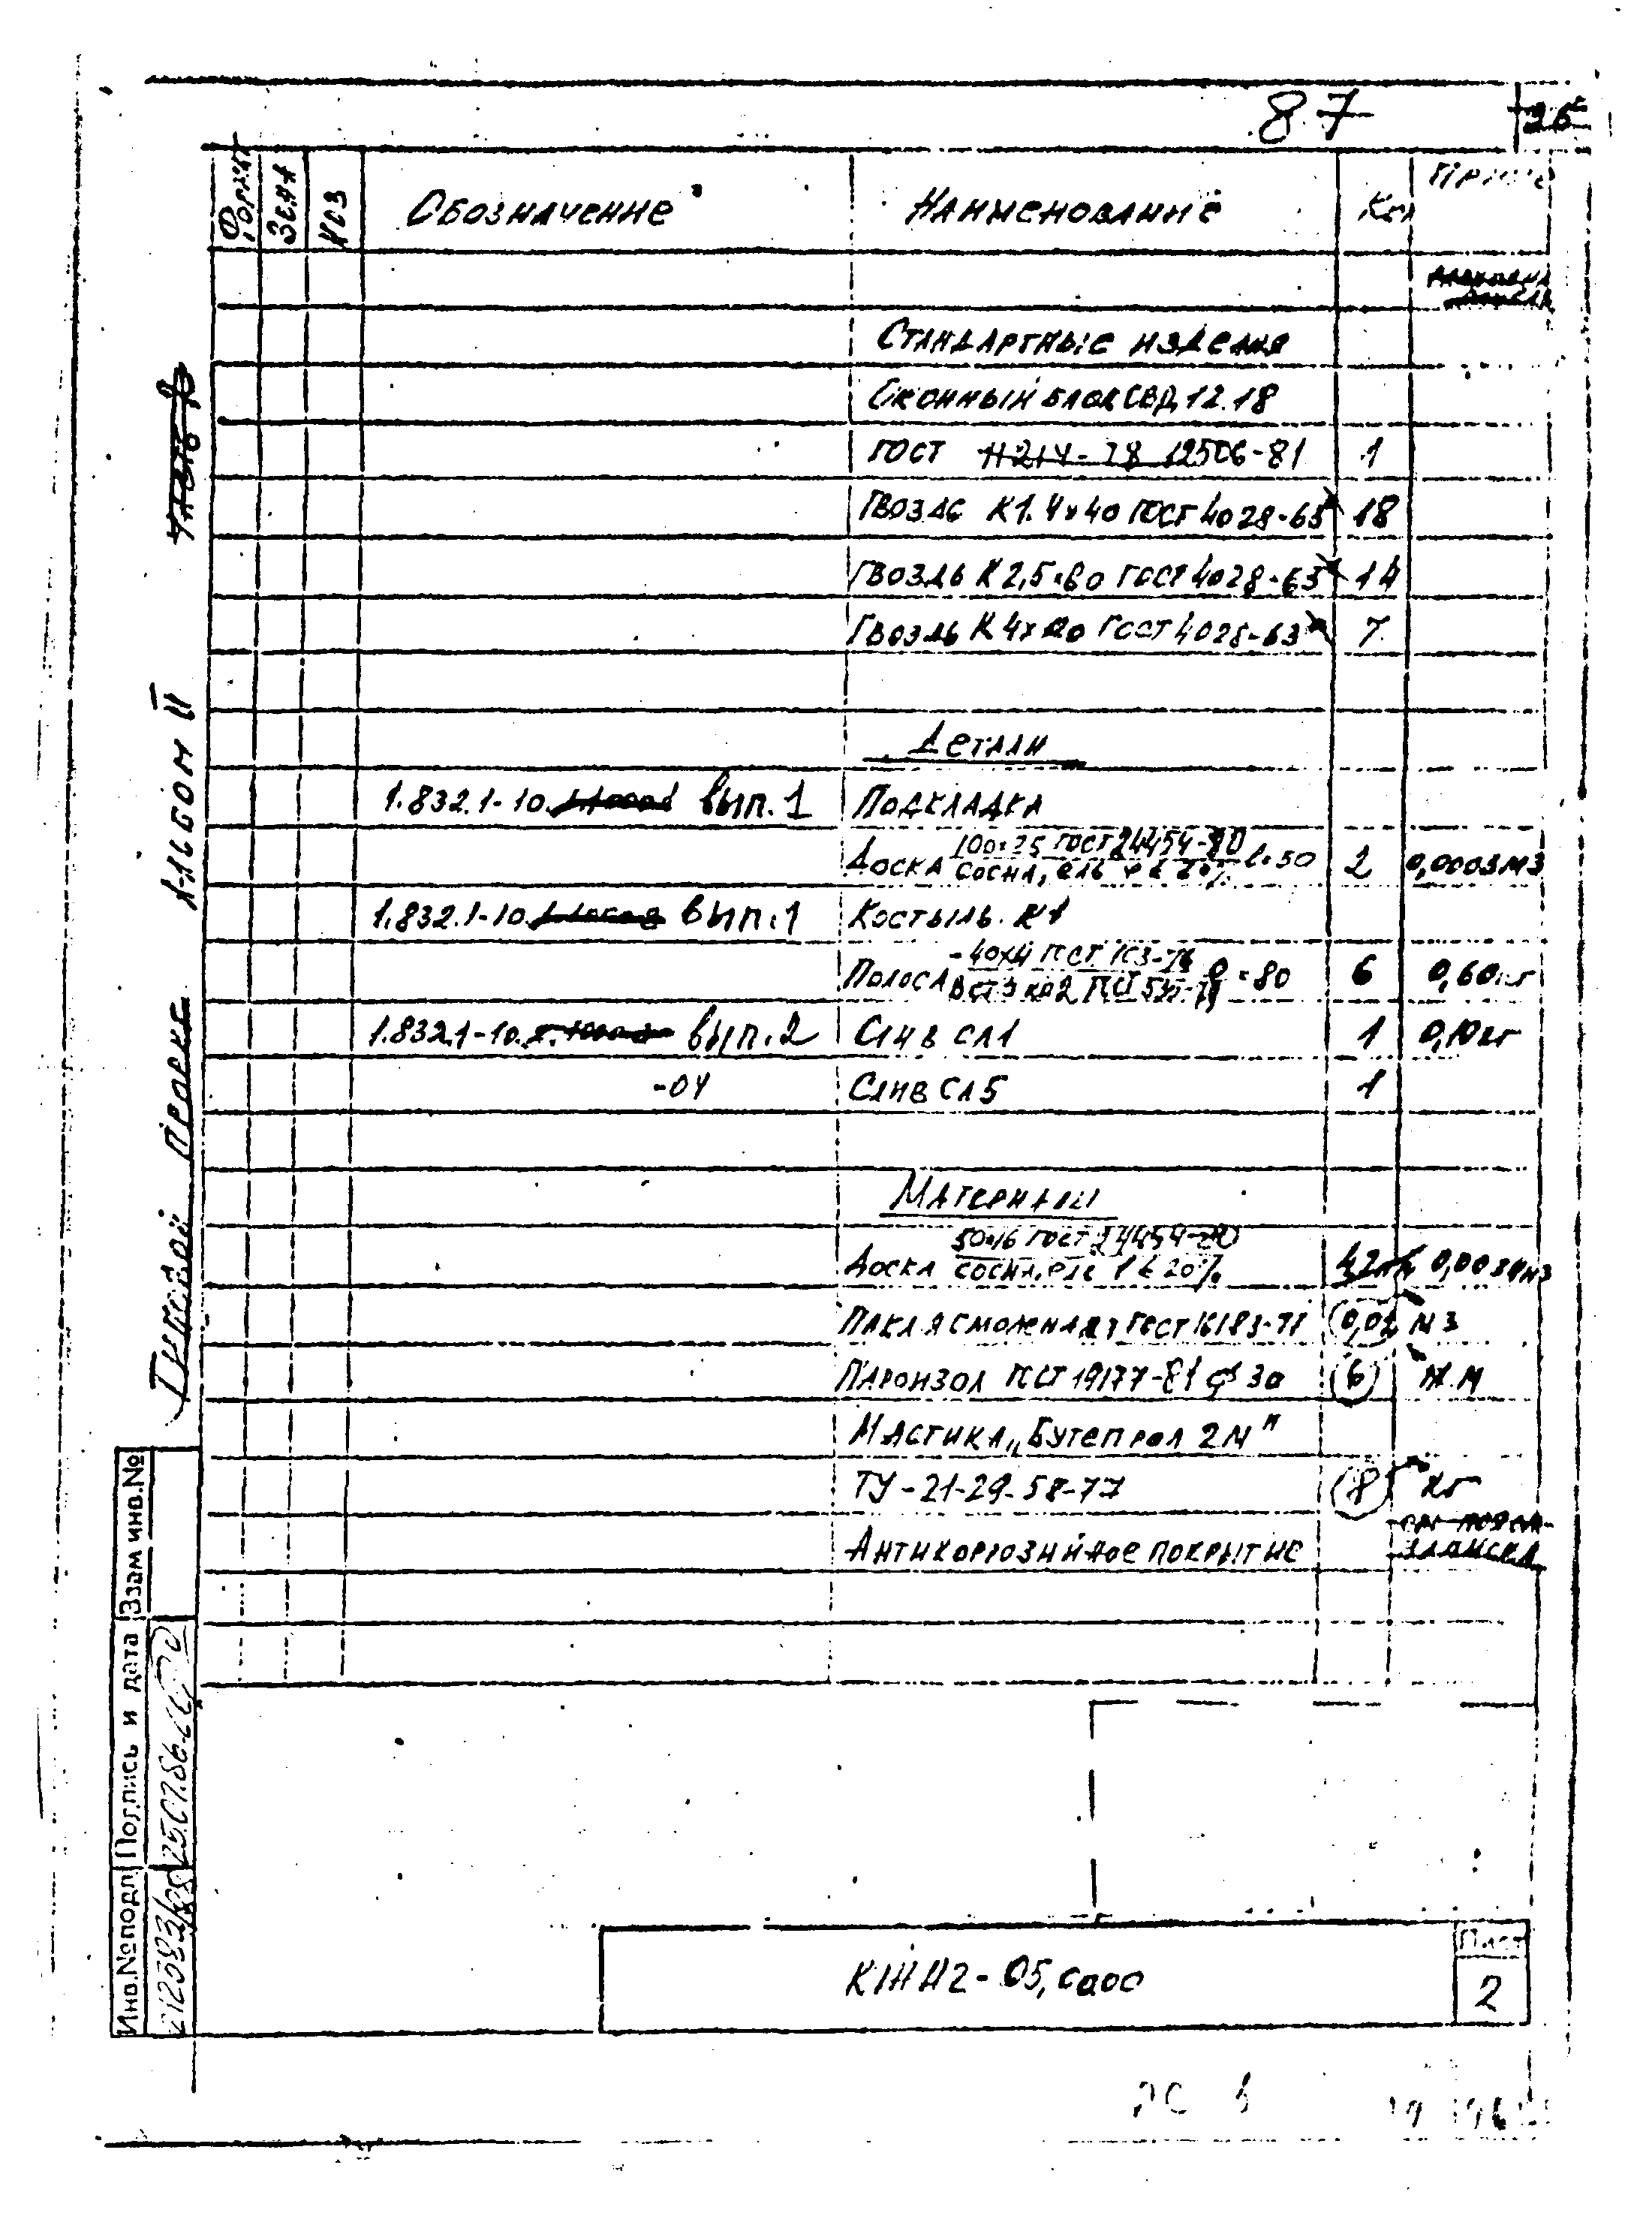 87
26
Формат Зона Поз Обозначение Наименование Кол
Стандартные изделия
Оконный блок СВД 12.18
ГОСТ 11214-78 12506-81 1
Гвоздь К1.4х40 ГОСТ 4028-63* 18
Гвоздь К 2,5х60 ГОСТ 4028-63* 14
Гвоздь К 4х ГОСТ 4028-63* 7
Детали
1.832.1-10. вып.1 Подкладка
Доска 100х25 ГОСТ 24454-80 / сосна, ель φ ≤ 20% l=50 2 0,0003м3
1.832.1-10. вып.1 Костыль К1
Полоса -40х4 ГОСТ 103-76 / ВСт3кп2 ГОСТ 535-79 l=80 6 0,60кг
1.832.1-10. вып.2 Слив СЛ1 1 0,10кг
-04 Слив СЛ5 1
Материалы
Доска 50х16 ГОСТ 24454-80 / сосна, ель ≤ 20% 0,0034м3
Пакля смоленая ГОСТ 16183-77 0,02 м3
Пароизол ГОСТ 19177-81 ф 30 6 п.м
Мастика „Бутепрол 2М"
ТУ-21-29-58-77 8 кг
Антикоррозийное покрытие
Типовой проект Альбом II Часть
Взам инв.№
Подпись и дата
25.07.86
Инв.№подл
КЖИ2-05,0000
Лист
2